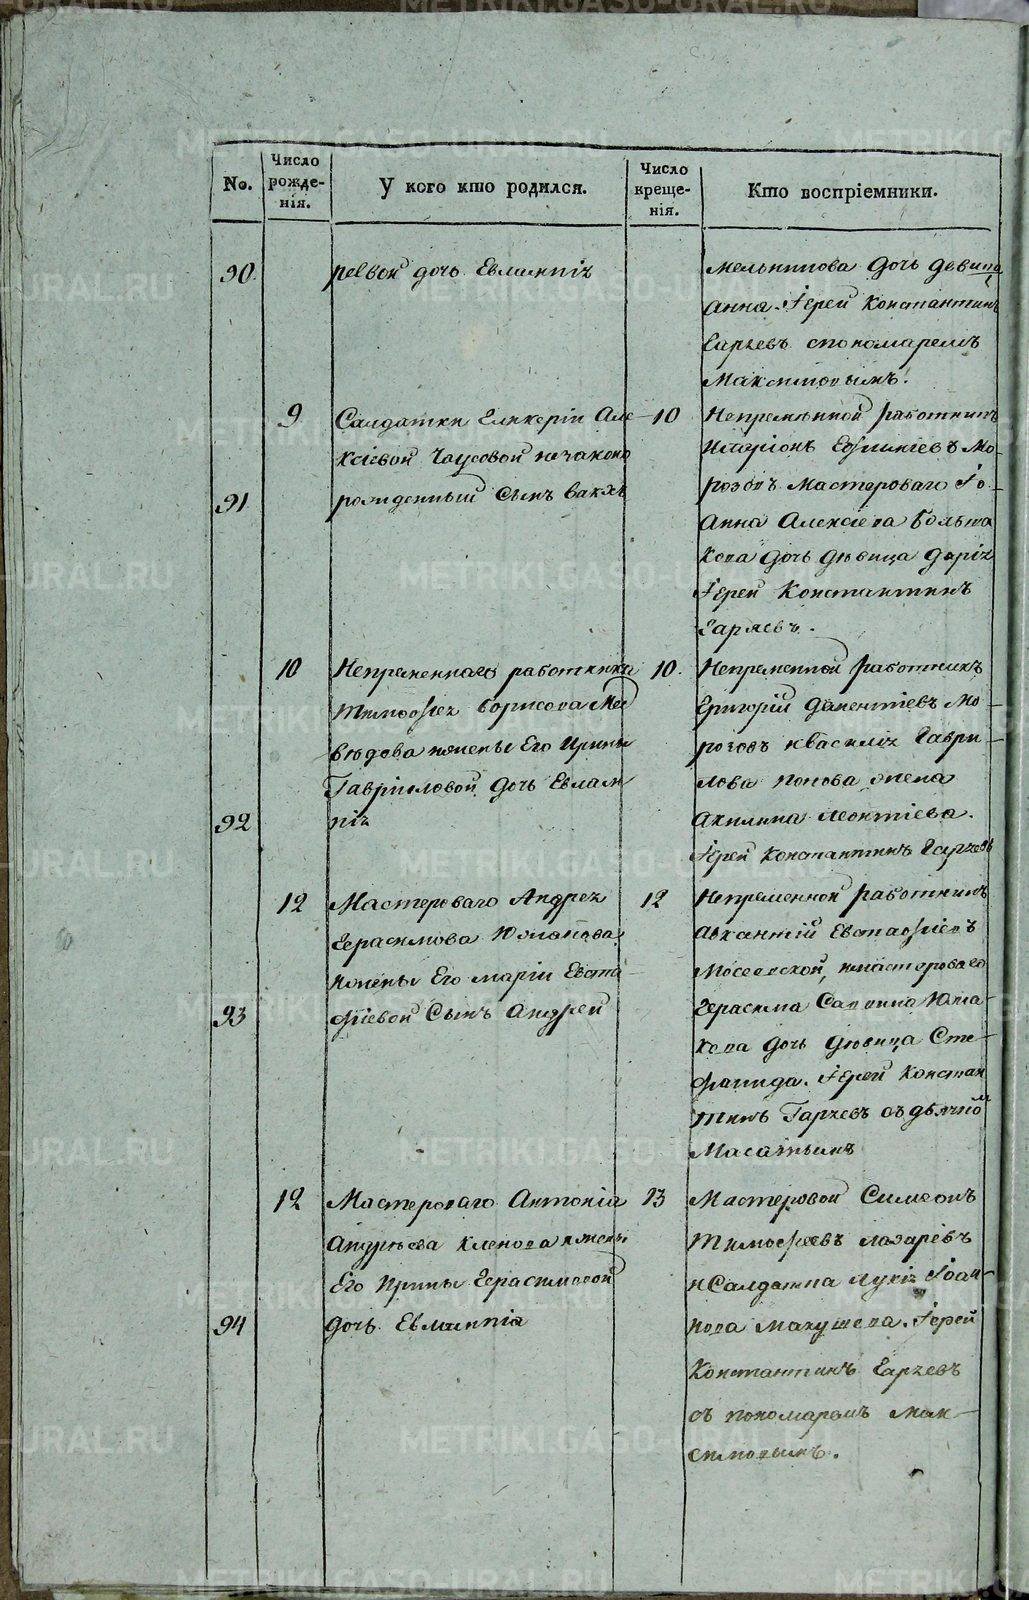 METRIKI.GASO-URAL.RU
No.
Число рожде-нія.
У кого кто родился.
Число креще-нія.
Кто воспріемники.
90
ревой дочь Евлампія
Мельникова дочь девица
Анна. Іерей Константинъ
Гаряевъ спономаремъ
Максимовымъ.
9
Салдатки Гликеріи Але
ксіевой Чаусовой незаконо
91
рожденный Сынъ Вакхъ
10
Непременной работникъ
Иларіонъ Мо-
розовъ Мастероваго Іо-
анна Алексіева Больша
кова дочь девица Дарія
Іерей Константинъ
Гаряевъ.
10
Непременнаго работника
Тимофея Борисова Мед
ведева ижены Его Ирины
Гавріиловой дочь Евлам
92
пія
10.
Непременной работникъ
Григорій Дементіевъ Мо-
розовъ иВасилія Гаври-
лова Попова жена
Акилина Леонтіева.
Іерей Константинъ Гаряевъ
12
Мастероваго Андрея
Герасимова Юманова
ижены Его Маріи Евста
93
фіевой Сынъ Андрей
12
Непременной работникъ
Авксентій Евстафіевъ
имастероваго
Герасима Савина Юма-
кова дочь девица Сте-
фанида. Іерей Констан
тинъ Гаряевъ съ дьячкомъ
12
Мастероваго Антонія
Андреева Кленова ижены
Его Ирины Герасимовой
94
дочь Евлампія
13
Мастеровой Симеонъ
Тимофеевъ Лазаревъ
иСалдатка Лукія Іоан-
нова Макушева. Іерей
Константинъ Гаряевъ
съ пономаремъ Мак-
симовымъ.